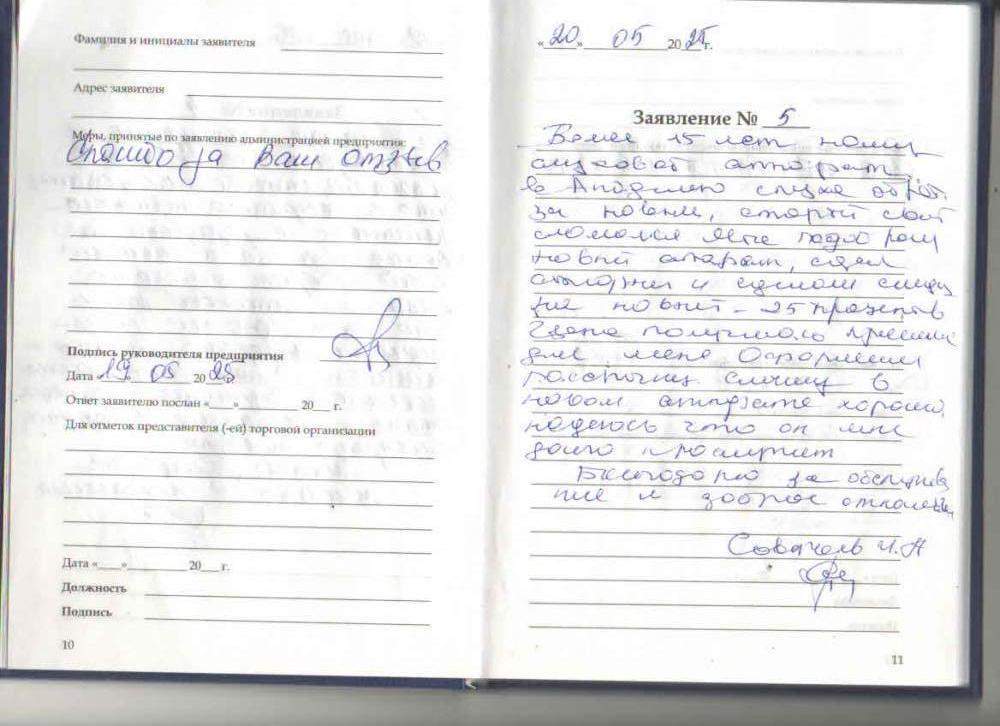 Фамилия и инициалы заявителя
Адрес заявителя
Меры, принятые по заявлению администрацией предприятия:
Спасибо за Ваш отзыв
Подпись руководителя предприятия
Дата «19» 05 2025 г.
Ответ заявителю послан «___» ________ 20___ г.
Для отметок представителя (-ей) торговой организации
Дата «____» ________ 20___ г.
Должность
Подпись
10
«20» 05 20 г.
Заявление № 5
Более 15 лет ношу
слуховой аппарат
в Академию слуха
за новым, старый свой
сломался Мне подобрали
новый апарат, сдел
и сделали скид
ку новый - 25 процентов
для меня Оформили
рассрочку Слышу в
новом аппарате хорошо,
надеюсь что он мне
долго прослужит
Благодарю за обслужив
ние и доброе отношен
И.А
11